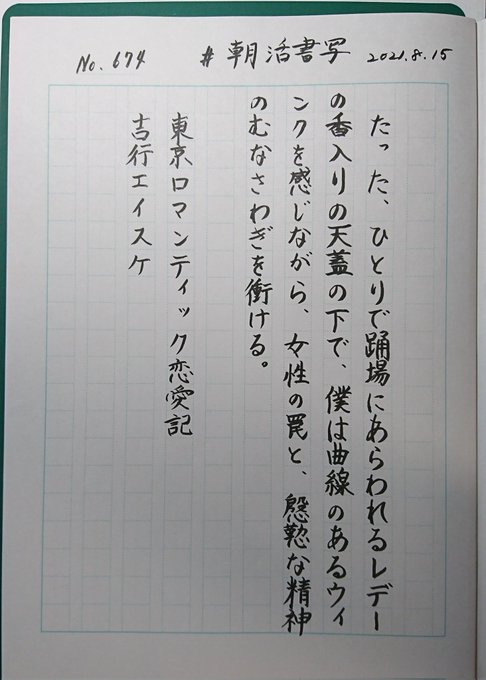 No. 674 #朝活書写 2021.8.15
たった、ひとりで踊場にあらわれるレデー
の香入りの天蓋の下で、僕は曲線のあるウィ
ンクを感じながら、女性の罠と、慇懃な精神
のむなさわぎを衝ける。
東京ロマンティック恋愛記
吉行エイスケ